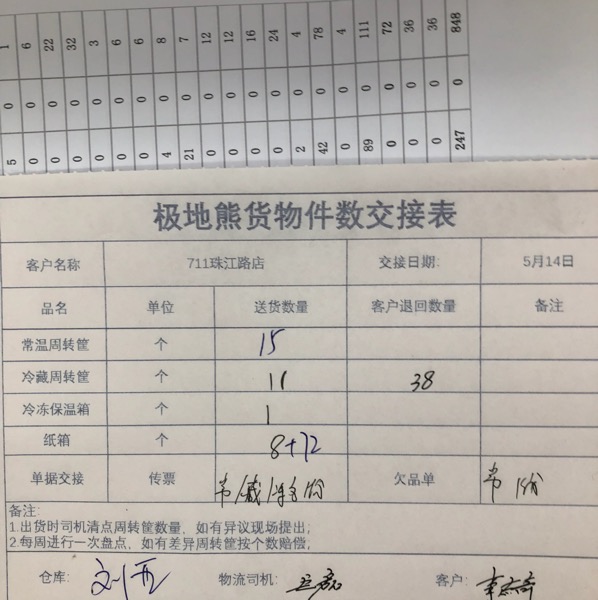 1 6 22 32 3 6 6 8 7 12 12 16 24 4 78 4 111 72 36 36 848
0 0 0 0 0 0 0 0 0 0 0 0 0 0 0 0 0 0 0 0
5 0 0 0 0 0 0 0 4 21 0 0 0 0 2 42 0 89 0 0 0 247
极地熊货物件数交接表
客户名称 711珠江路店 交接日期: 5月14日
品名 单位 送货数量 客户退回数量 备注
常温周转筐 个 15
冷藏周转筐 个 11 38
冷冻保温箱 个 1
纸箱 个 8+72
单据交接 传票 欠品单
备注:
1.出货时司机清点周转筐数量，如有异议现场提出;
2.每周进行一次盘点，如有差异周转筐按个数赔偿;
仓库: 物流司机: 客户: